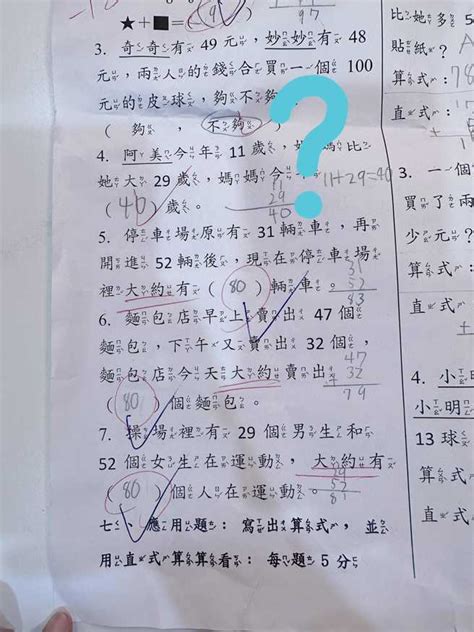 ★+■=( 9 )
97
3. 奇奇有 49 元，妙妙有 48
元，兩人的錢合買一個 100
元的皮球，夠不夠？
( 夠 ， 不夠 )
4. 阿美今年 11 歲，媽媽比
她大 29 歲，媽媽今
( 40 ) 歲。
11+29=40
11
29
40
5. 停車場原有 31 輛車，再
開進 52 輛後，現在停車場
裡大約有 ( 80 ) 輛車。
31
52
83
6. 麵包店早上賣出 47 個
麵包，下午又賣出 32 個，
麵包店今天大約賣出
( 80 ) 個麵包。
47
+ 32
79
7. 操場裡有 29 個男生和
52 個女生在運動，大約有
( 80 ) 個人在運動。
29
52
81
七、應用題：寫出算式，並
用直式算算看：每題 5 分
比她多 5
貼紙？
算式：
直式：
3. 一個
買了
少元？
算式：
直式：
4. 小明
小明
13 球
算式：
直式：
?